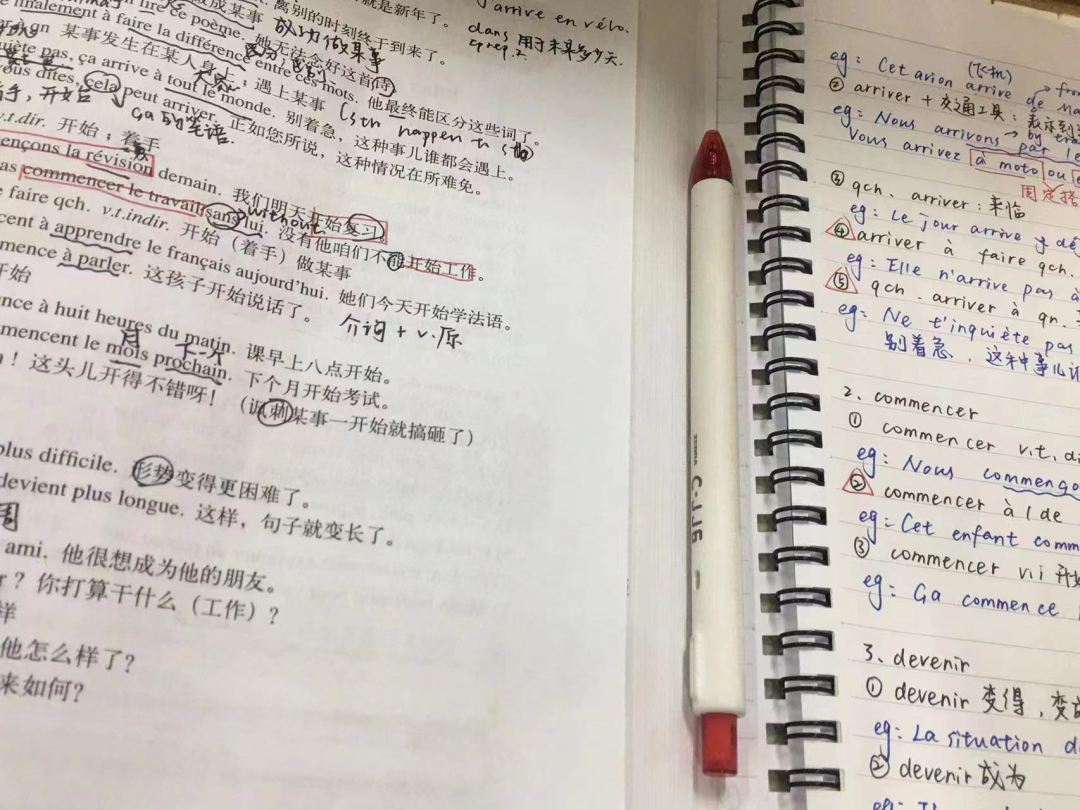 arrive en vélo.
dans 用于未来多少天.
prep.
就是新年了。
做成某事 离别的时刻终于到来了。
lire ce poème. 她无法念好这首诗
成功做某事
finalement à faire la différence entre ces mots. 他最终能区分这些词了。
区分
à qn 某事发生在某人身上；遇上某事 (sth happen to sb)
quiète pas, ça arrive à tout le monde. 别着急，这种事儿谁都会遇上。
大家
vous dites, cela peut arriver. 正如您所说，这种情况在所难免。
ça的
v.t.dir. 开始；着手
ençons la révision demain. 我们明天开始复习。
as commencer le travail sans lui. 没有他咱们不能开始工作。
without
faire qch. v.t.indir. 开始（着手）做某事
cent à apprendre le français aujourd'hui. 她们今天开始学法语。
mence à parler. 这孩子开始说话了。
介词 + v.原
开始
ence à huit heures du matin. 课早上八点开始。
月 下一个
mencent le mois prochain. 下个月开始考试。
! 这头儿开得不错呀！（讽刺某事一开始就搞砸了）
plus difficile. 形势变得更困难了。
devient plus longue. 这样，句子就变长了。
ami. 他很想成为他的朋友。
? 你打算干什么（工作）？
样
他怎么样了？
来如何？
(飞机)
eg: Cet avion arrive de Ma
from
② arriver + 交通工具: 表示到
by tra
eg: Nous arrivons par le
Vous arrivez à moto ou
固定搭
③ qch. arriver: 来临
eg: Le jour arrive
④ arriver à faire qch.
eg: Elle n'arrive pas à
⑤ qch. arriver à qn.
eg: Ne t'inquiète pas
别着急，这种事儿
2. commencer
① commencer v.t. di
eg: Nous commenço
② commencer à / de
eg: Cet enfant comm
③ commencer vii 开始
eg: Ça commence
3、devenir
① devenir 变得，变
eg: La situation d
② devenir 成为